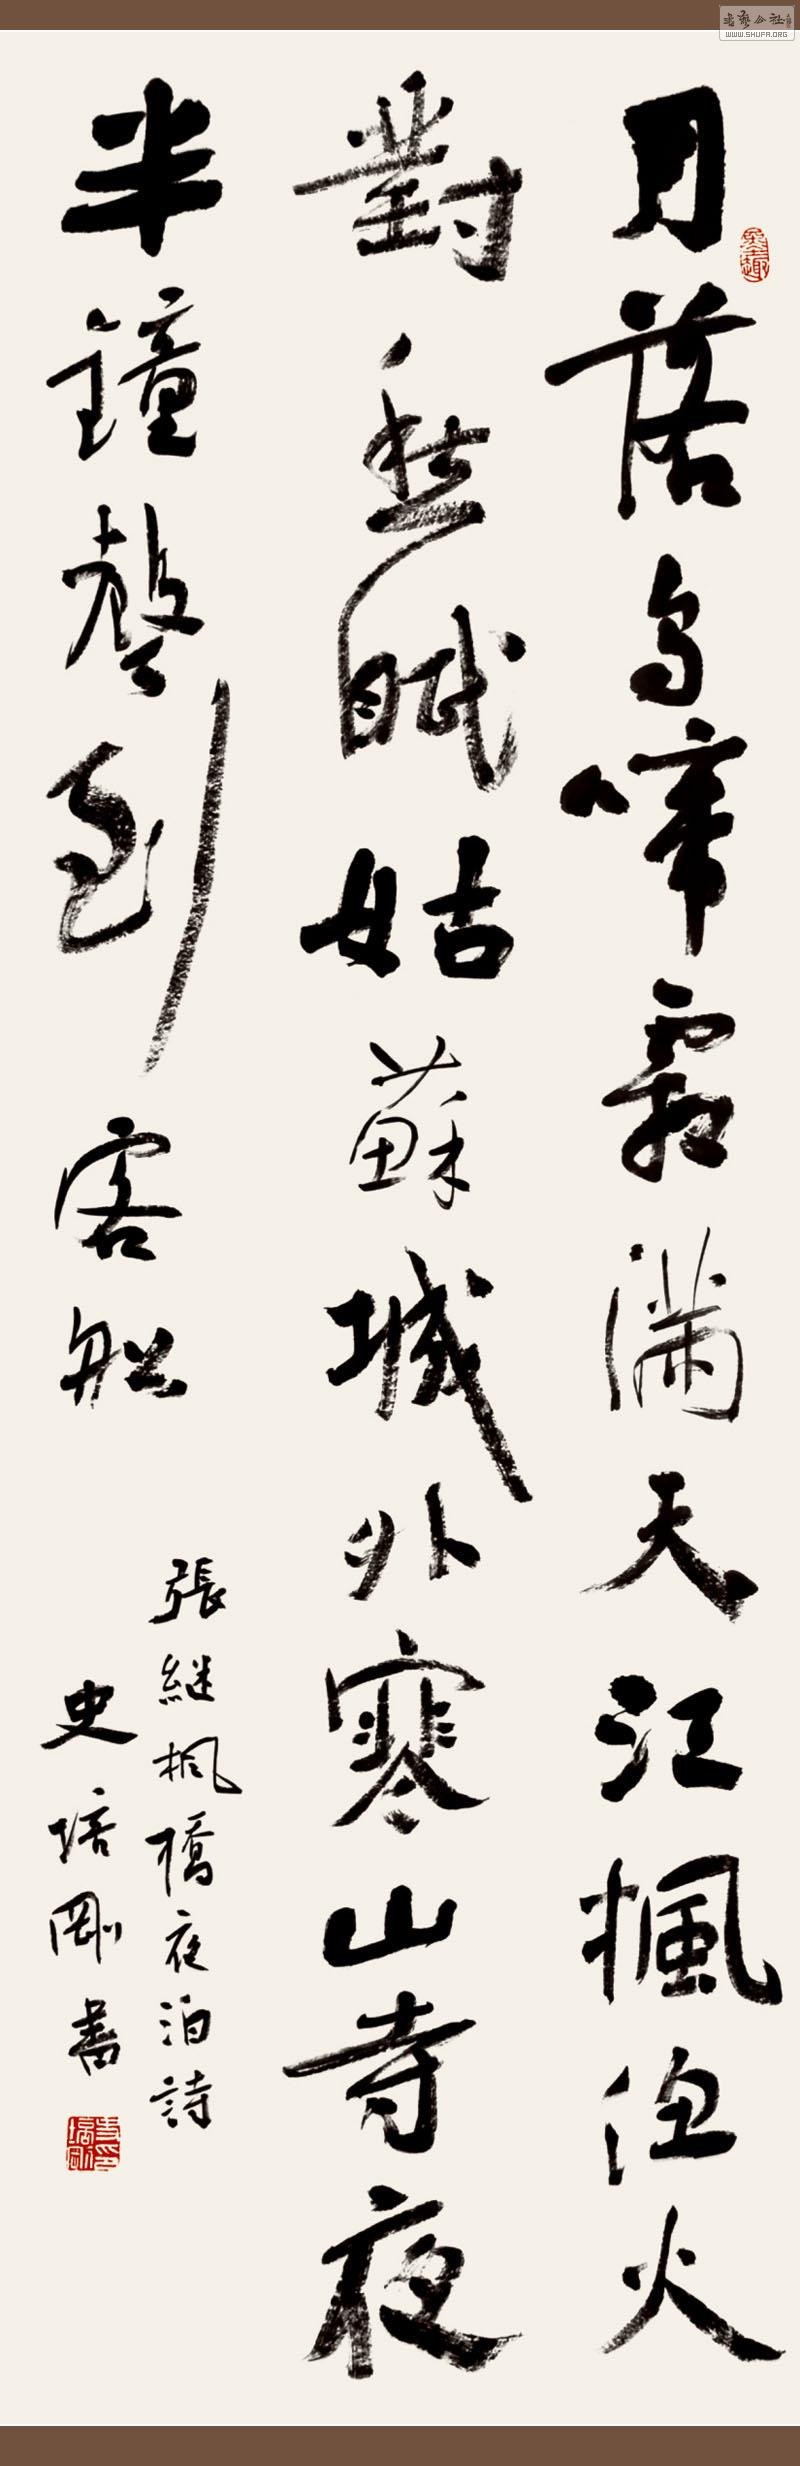 月落烏啼霜滿天江楓漁火
對愁眠姑蘇城外寒山寺夜
半鐘聲到客船
張継楓橋夜泊詩
史培剛書
WWW.SHUFA.ORG